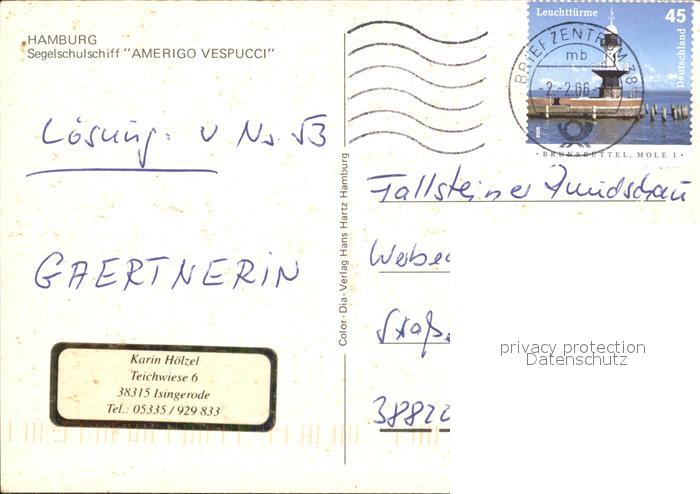 HAMBURG
Segelschulschiff "AMERIGO VESPUCCI"
Lösung: v Nr. 53
GAERTNERIN
Karin Hölzel
Teichwiese 6
38315 Isingerode
Tel.: 05335 / 929 833
Color-Dia-Verlag Hans Hartz Hamburg
Leuchttürme 45
Deutschland
BRIEFZENTRUM 38
mb
-2.-2.06-
2005
· BRUNSBÜTTEL, MOLE 1 ·
Fallsteiner Rundschau
Straß
38820
privacy protection
Datenschutz